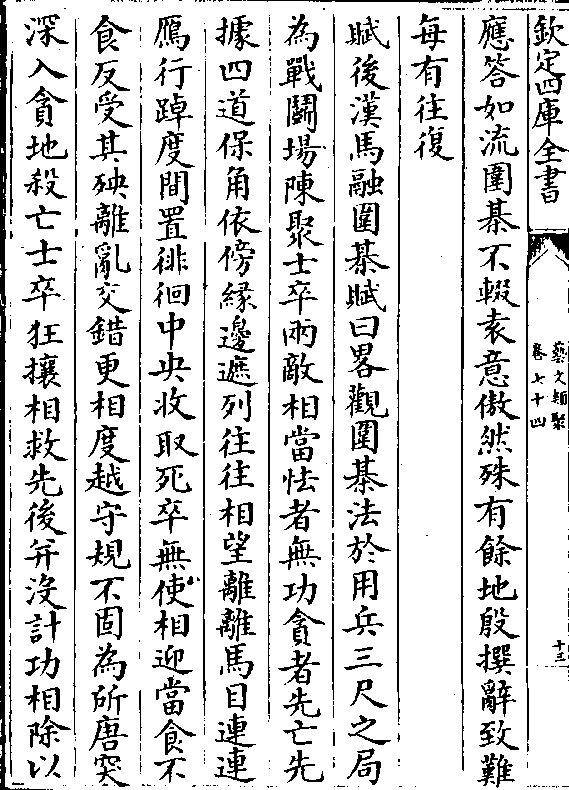 欽定四庫全書
藝文類聚
卷七十四
十三
應答如流圍棊不輟袁意傲然殊有餘地殷撰辭致難
每有往復
賦後漢馬融圍棊賦曰畧觀圍棊法於用兵三尺之局
為戰鬭場陳聚士卒兩敵相當怯者無功貪者先亡先
據四道保角依傍緣邊遮列往往相望離離馬目連連
鴈行踔度間置徘徊中央收取死卒無使相迎當食不
食反受其殃離亂交錯更相度越守規不固為所唐突
深入貪地殺亡士卒狂攘相救先後并沒計功相除以